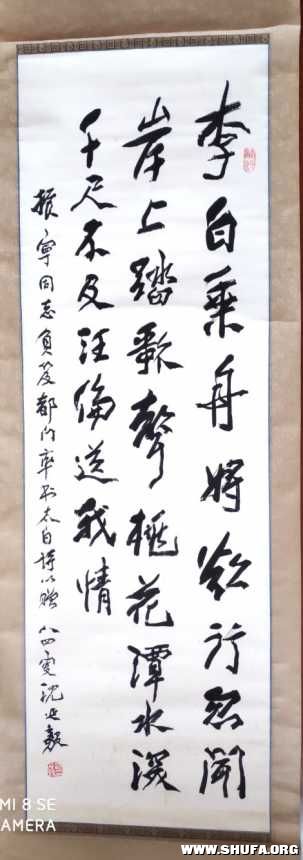 李白乘舟将欲行忽闻
岸上踏歌声桃花潭水深
千尺不及汪伦送我情
振宁同志负笈都门率书太白诗以赠 八四叟沈延毅
MI 8 SE
AMERA
WWW.SHUFA.ORG